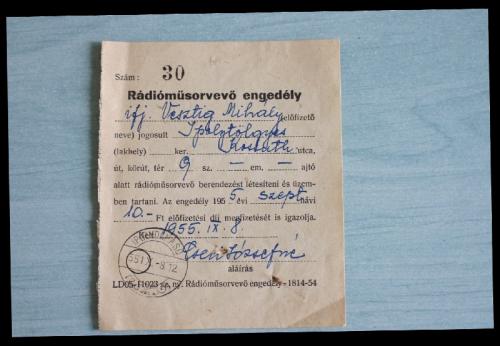 Szám: 30
Rádióműsorvevő engedély
ifj. Vesztig Mihály (előfizető
neve) jogosult Ipolytölgyes
(lakhely) ker. Kossuth utca,
út, körút, tér 9 sz. — em. — ajtó
alatt rádióműsorvevő berendezést létesíteni és üzem-
ben tartani. Az engedély 1955 évi szept havi
10.- Ft előfizetési díj megfizetését is igazolja.
Kelt 1955. IX. 8.
aláírás
LD05-11023 ny. Rádióműsorvevő engedély - 1814-54